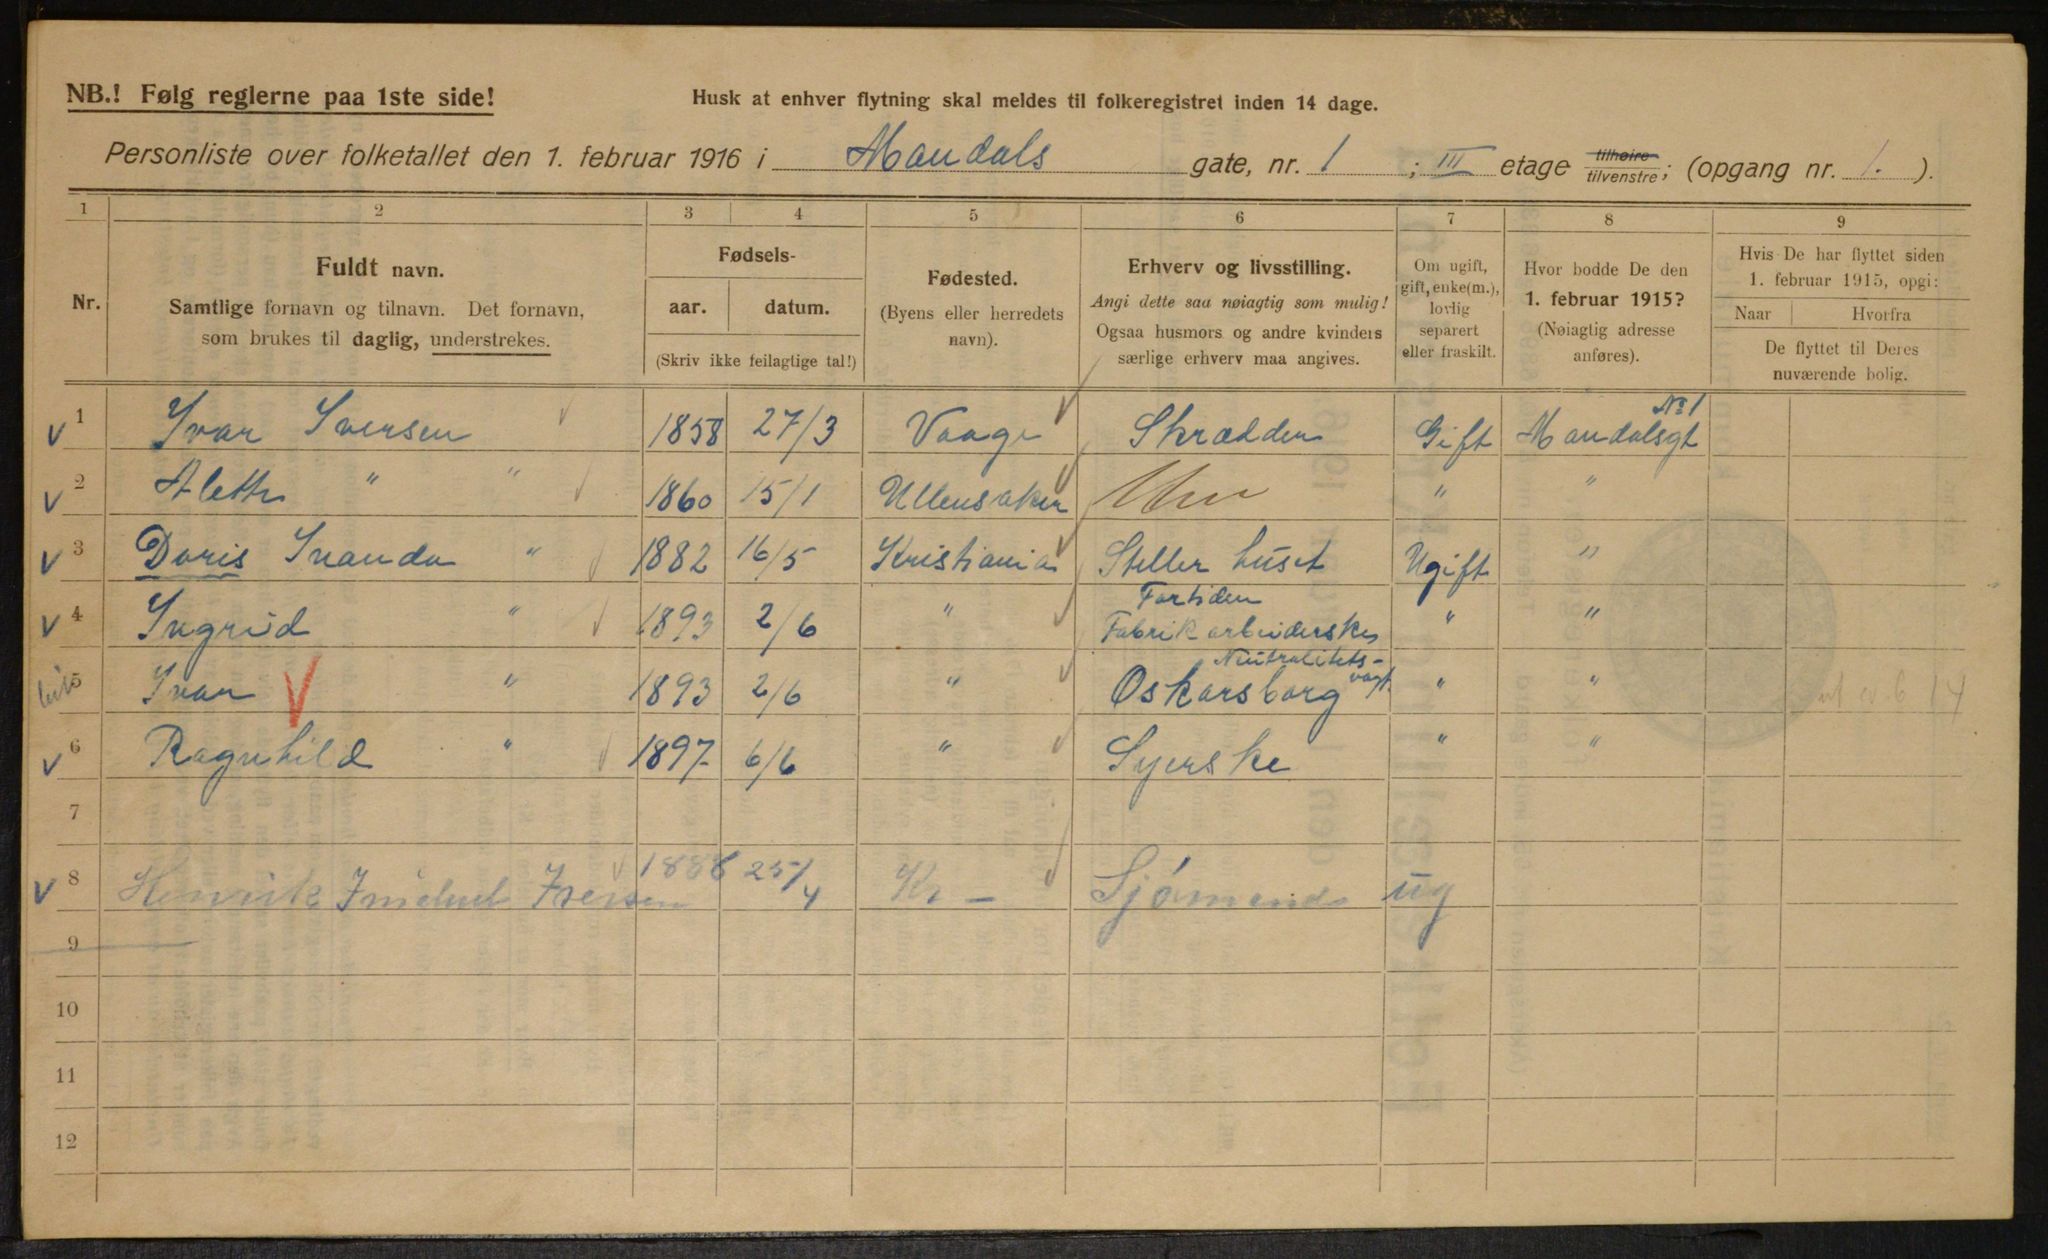 NB.! Følg reglerne paa 1ste side!
Husk at enhver flytning skal meldes til folkeregistret inden 14 dage.
Personliste over folketallet den 1. februar 1916 i Mandals gate, nr. 1 ; III etage tilhøire tilvenstre; (opgang nr. 1. ).
1 2 3 4 5 6 7 8 9
Nr.
Fuldt navn.
Samtlige fornavn og tilnavn. Det fornavn,
som brukes til daglig, understrekes.
Fødsels-
aar. datum.
(Skriv ikke feilagtige tal!)
Fødested.
(Byens eller herredets
navn).
Erhverv og livsstilling.
Angi dette saa nøiagtig som mulig!
Ogsaa husmors og andre kvinders
særlige erhverv maa angives.
Om ugift,
gift, enke(m.),
lovlig
separert
eller fraskilt.
Hvor bodde De den
1. februar 1915?
(Nøiagtig adresse
anføres).
Hvis De har flyttet siden
1. februar 1915, opgi:
Naar Hvorfra
De flyttet til Deres
nuværende bolig.
1 Ivar Iversen 1858 27/3 Vaage Skrædder Gift Mandalsgt No 1
2 Alette " " 1860 15/1 Ullensaker " "
3 Doris Ivanda " 1882 16/5 Kristiania Steller huset Ugift "
4 Ingrid " 1893 2/6 " Fortiden
Fabrikarbeiderske " "
5 Ivar " 1893 2/6 " Nøitralitets-
Oskarsborg vagt. " "
6 Ragnhild " 1897 6/6 " Syerske " "
7
8 Henrik Iversen 1888 25/4 Kr - Sjømand ug
9
10
11
12